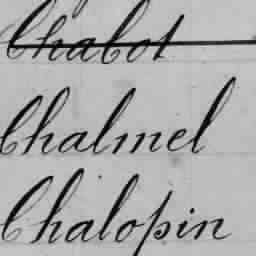 Chabot
Chalmel
Chalopin